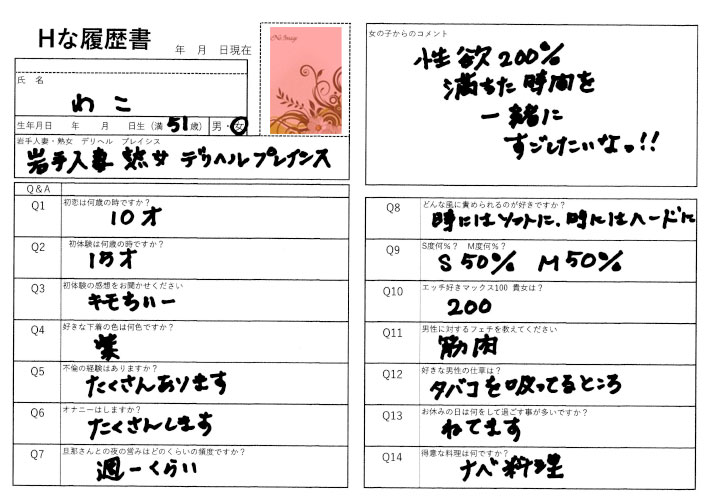 Hな履歴書
年 月 日現在
氏 名
わこ
生年月日 年 月 日生(満 51 歳) 男・女
岩手人妻・熟女 デリヘル プレイシス
岩手人妻 熟女 デリヘルプレイシス
No Image
女の子からのコメント
性欲200%
満ちた時間を
一緒に
すごしたいなっ!!
Q&A
Q1 初恋は何歳の時ですか?
10才
Q2 初体験は何歳の時ですか?
Q3 初体験の感想をお聞かせください
キモちぃー
Q4 好きな下着の色は何色ですか?
紫
Q5 不倫の経験はありますか?
たくさんあります
Q6 オナニーはしますか?
たくさんします
Q7 旦那さんとの夜の営みはどのくらいの頻度ですか?
週一くらい
Q8 どんな風に責められるのが好きですか?
時にはソフトに、時にはハードに
Q9 S度何%? M度何%?
S 50% M 50%
Q10 エッチ好きマックス100 貴女は?
200
Q11 男性に対するフェチを教えてください
筋肉
Q12 好きな男性の仕草は?
タバコを吸ってるところ
Q13 お休みの日は何をして過ごす事が多いですか?
ねてます
Q14 得意な料理は何ですか?
ナベ料理